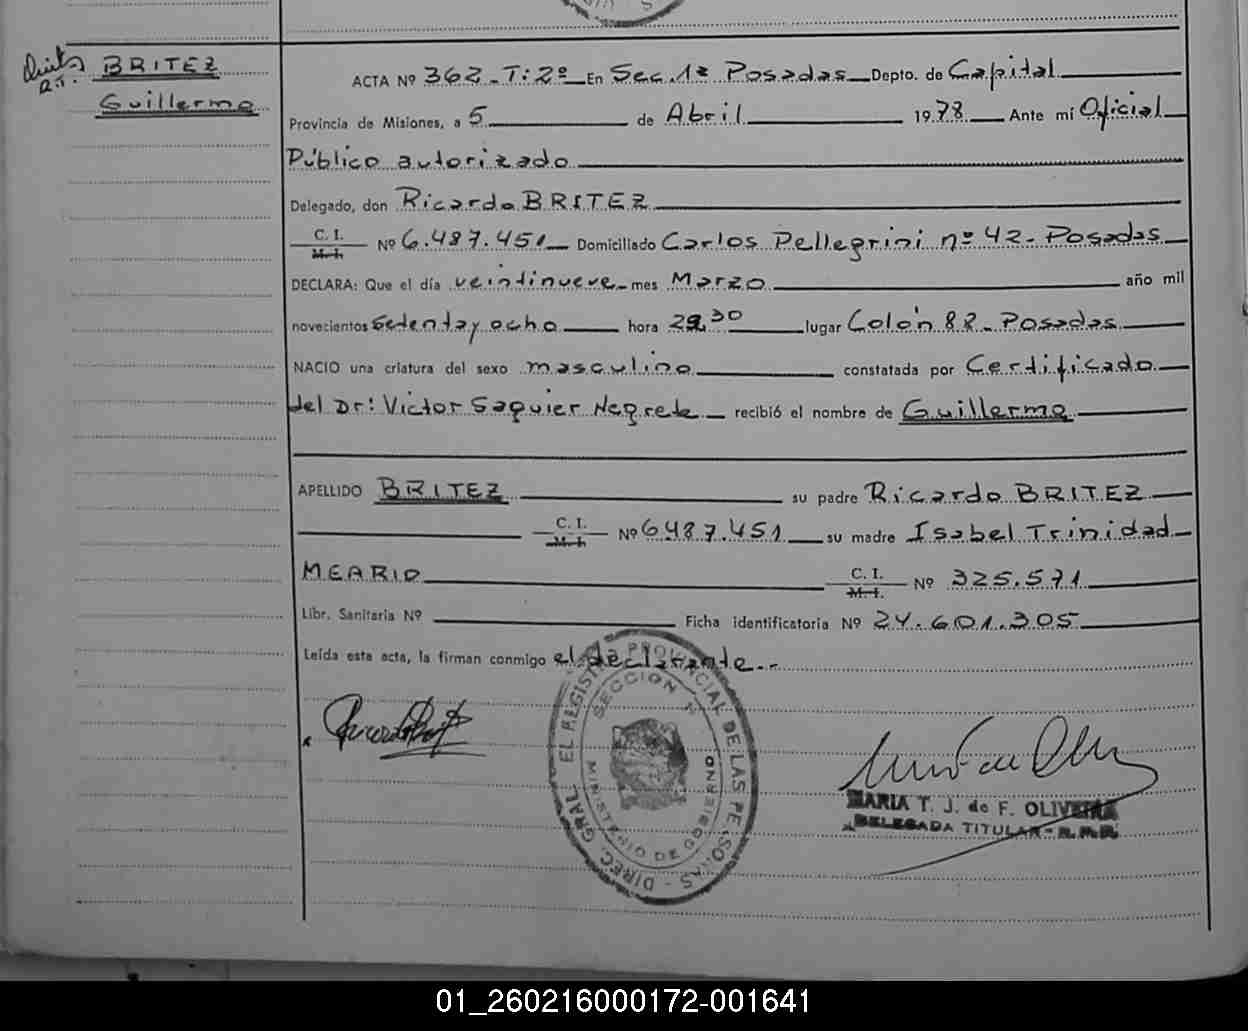 BRITEZ
Guillermo
ACTA Nº 362 - T: 2º En Sec. 1ª Posadas Depto. de Capital
Provincia de Misiones, a 5 de Abril 1978 Ante mí Oficial
Público autorizado
Delegado, don Ricardo BRITEZ
C. I.
M. I. Nº 6.487.451 Domiciliado Carlos Pellegrini nº 42 - Posadas
DECLARA: Que el día veintinueve mes Marzo año mil
novecientos setenta y ocho hora lugar Colón 82 - Posadas
NACIO una criatura del sexo masculino constatada por Certificado
del Dr: Victor Saquier Negrete recibió el nombre de Guillermo
APELLIDO BRITEZ su padre Ricardo BRITEZ
C. I.
M. I. Nº 6487.451 su madre Isabel Trinidad
MEARIO C. I.
M. I. Nº 325.571
Libr. Sanitaria Nº Ficha identificatoria Nº 24.601.305
Leída esta acta, la firman conmigo el declarante.-
DIREC. GRAL. EL REGISTRO PROVINCIAL DE LAS PERSONAS
SECCION 1ª
MINISTERIO DE GOBIERNO
MARIA T. J. de F. OLIVEIRA
DELEGADA TITULAR - R.P.P.
01_260216000172-001641